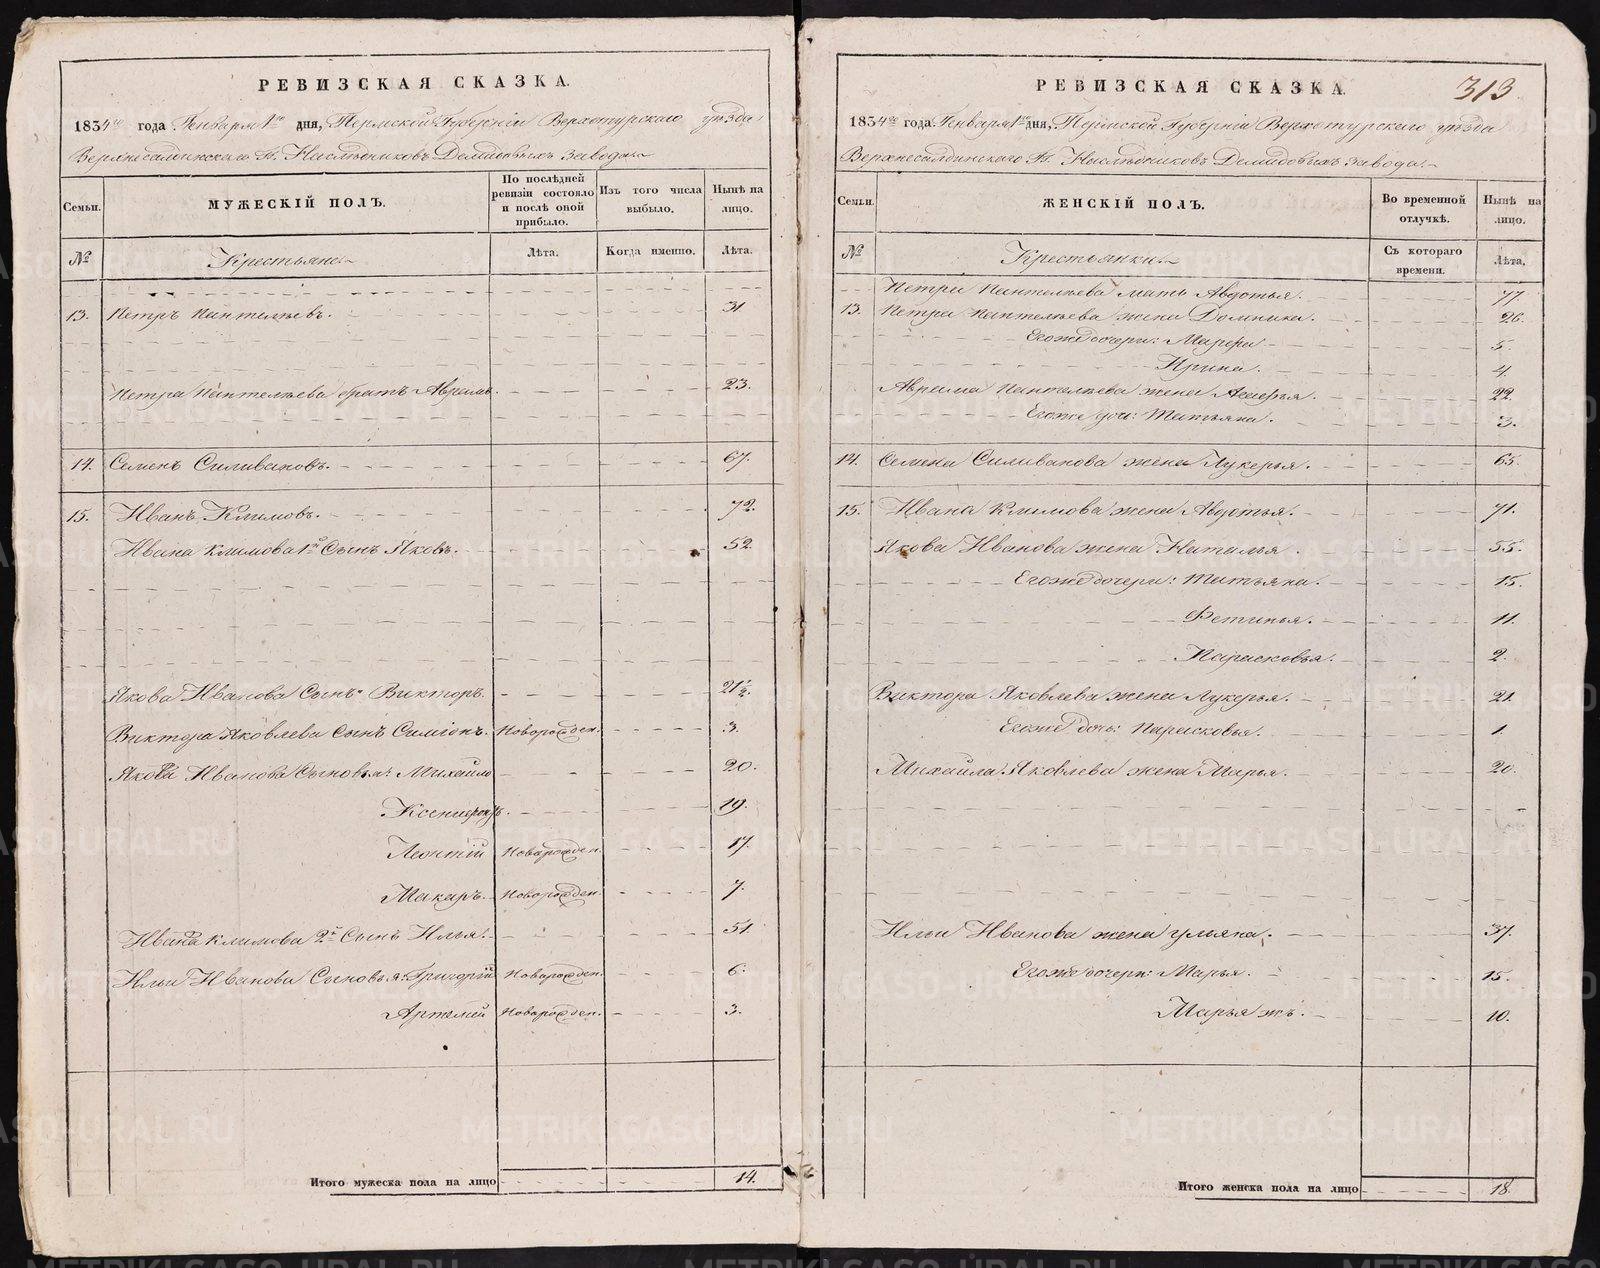 РЕВИЗСКАЯ СКАЗКА.
1834го года Генваря 1го дня, Пермской Губерніи Верхотурскаго уѣзда
Верхнесалдинскаго Гг. Наслѣдниковъ Демидовыхъ завода.
Семьи.
МУЖЕСКІЙ ПОЛЪ.
По послѣдней ревизіи состояло и послѣ оной прибыло.
Изъ того числа выбыло.
Нынѣ на лицо.
№
Крестьяне.
Лѣта.
Когда именно.
Лѣта.
13. Петръ Пантелѣевъ. 31.
Петра Пантелѣева братъ Аврамъ. 23.
14. Семенъ Силивановъ. 67.
15. Иванъ Климовъ. 72.
Ивана Климова 1й Сынъ Яковъ. 52.
Якова Иванова Сынъ Викторъ. 21½.
Виктора Яковлева Сынъ Симіонъ. Новорожден. 3.
Якова Иванова Сыновья: Михайло 20.
Ксенофонтъ. 19.
Леонтій Новорожден. 17.
Макаръ. Новорожден. 7.
Ивана Климова 2й Сынъ Илья. 51.
Ильи Иванова Сыновья: Григорій Новорожден. 6.
Артемій Новорожден. 3.
Итого мужеска пола на лицо 14.
РЕВИЗСКАЯ СКАЗКА. 313
1834го года. Генваря 1го дня, Пермской Губерніи Верхотурскаго уѣзда
Верхнесалдинскаго Гг. Наслѣдниковъ Демидовыхъ завода.
Семьи.
ЖЕНСКІЙ ПОЛЪ.
Во временной отлучкѣ.
Нынѣ на лицо.
№
Крестьянки.
Съ котораго времени.
Лѣта.
Петра Пантелѣева мать Авдотья. 77.
13. Петра Пантелѣева жена Домника. 26.
Егоже дочери: Марфа 5.
Ирина. 4.
Аврама Пантелѣева жена 22.
Егоже доч: Татьяна. 3.
14. Семена Силиванова жена Лукерья. 65.
15. Ивана Климова жена Авдотья. 71.
Якова Иванова жена Наталья. 55.
Егоже дочери: Татьяна. 15.
Фетинья. 11.
Парасковья. 2.
Виктора Яковлева жена Лукерья. 21.
Егоже дочь: Парасковья. 1.
Михайла Яковлева жена Марья. 20.
Ильи Иванова жена Ульяна. 37.
Егоже дочери: Марья. 15.
Марья жъ. 10.
Итого женска пола на лицо 18.
METRIKI.GASO-URAL.RU